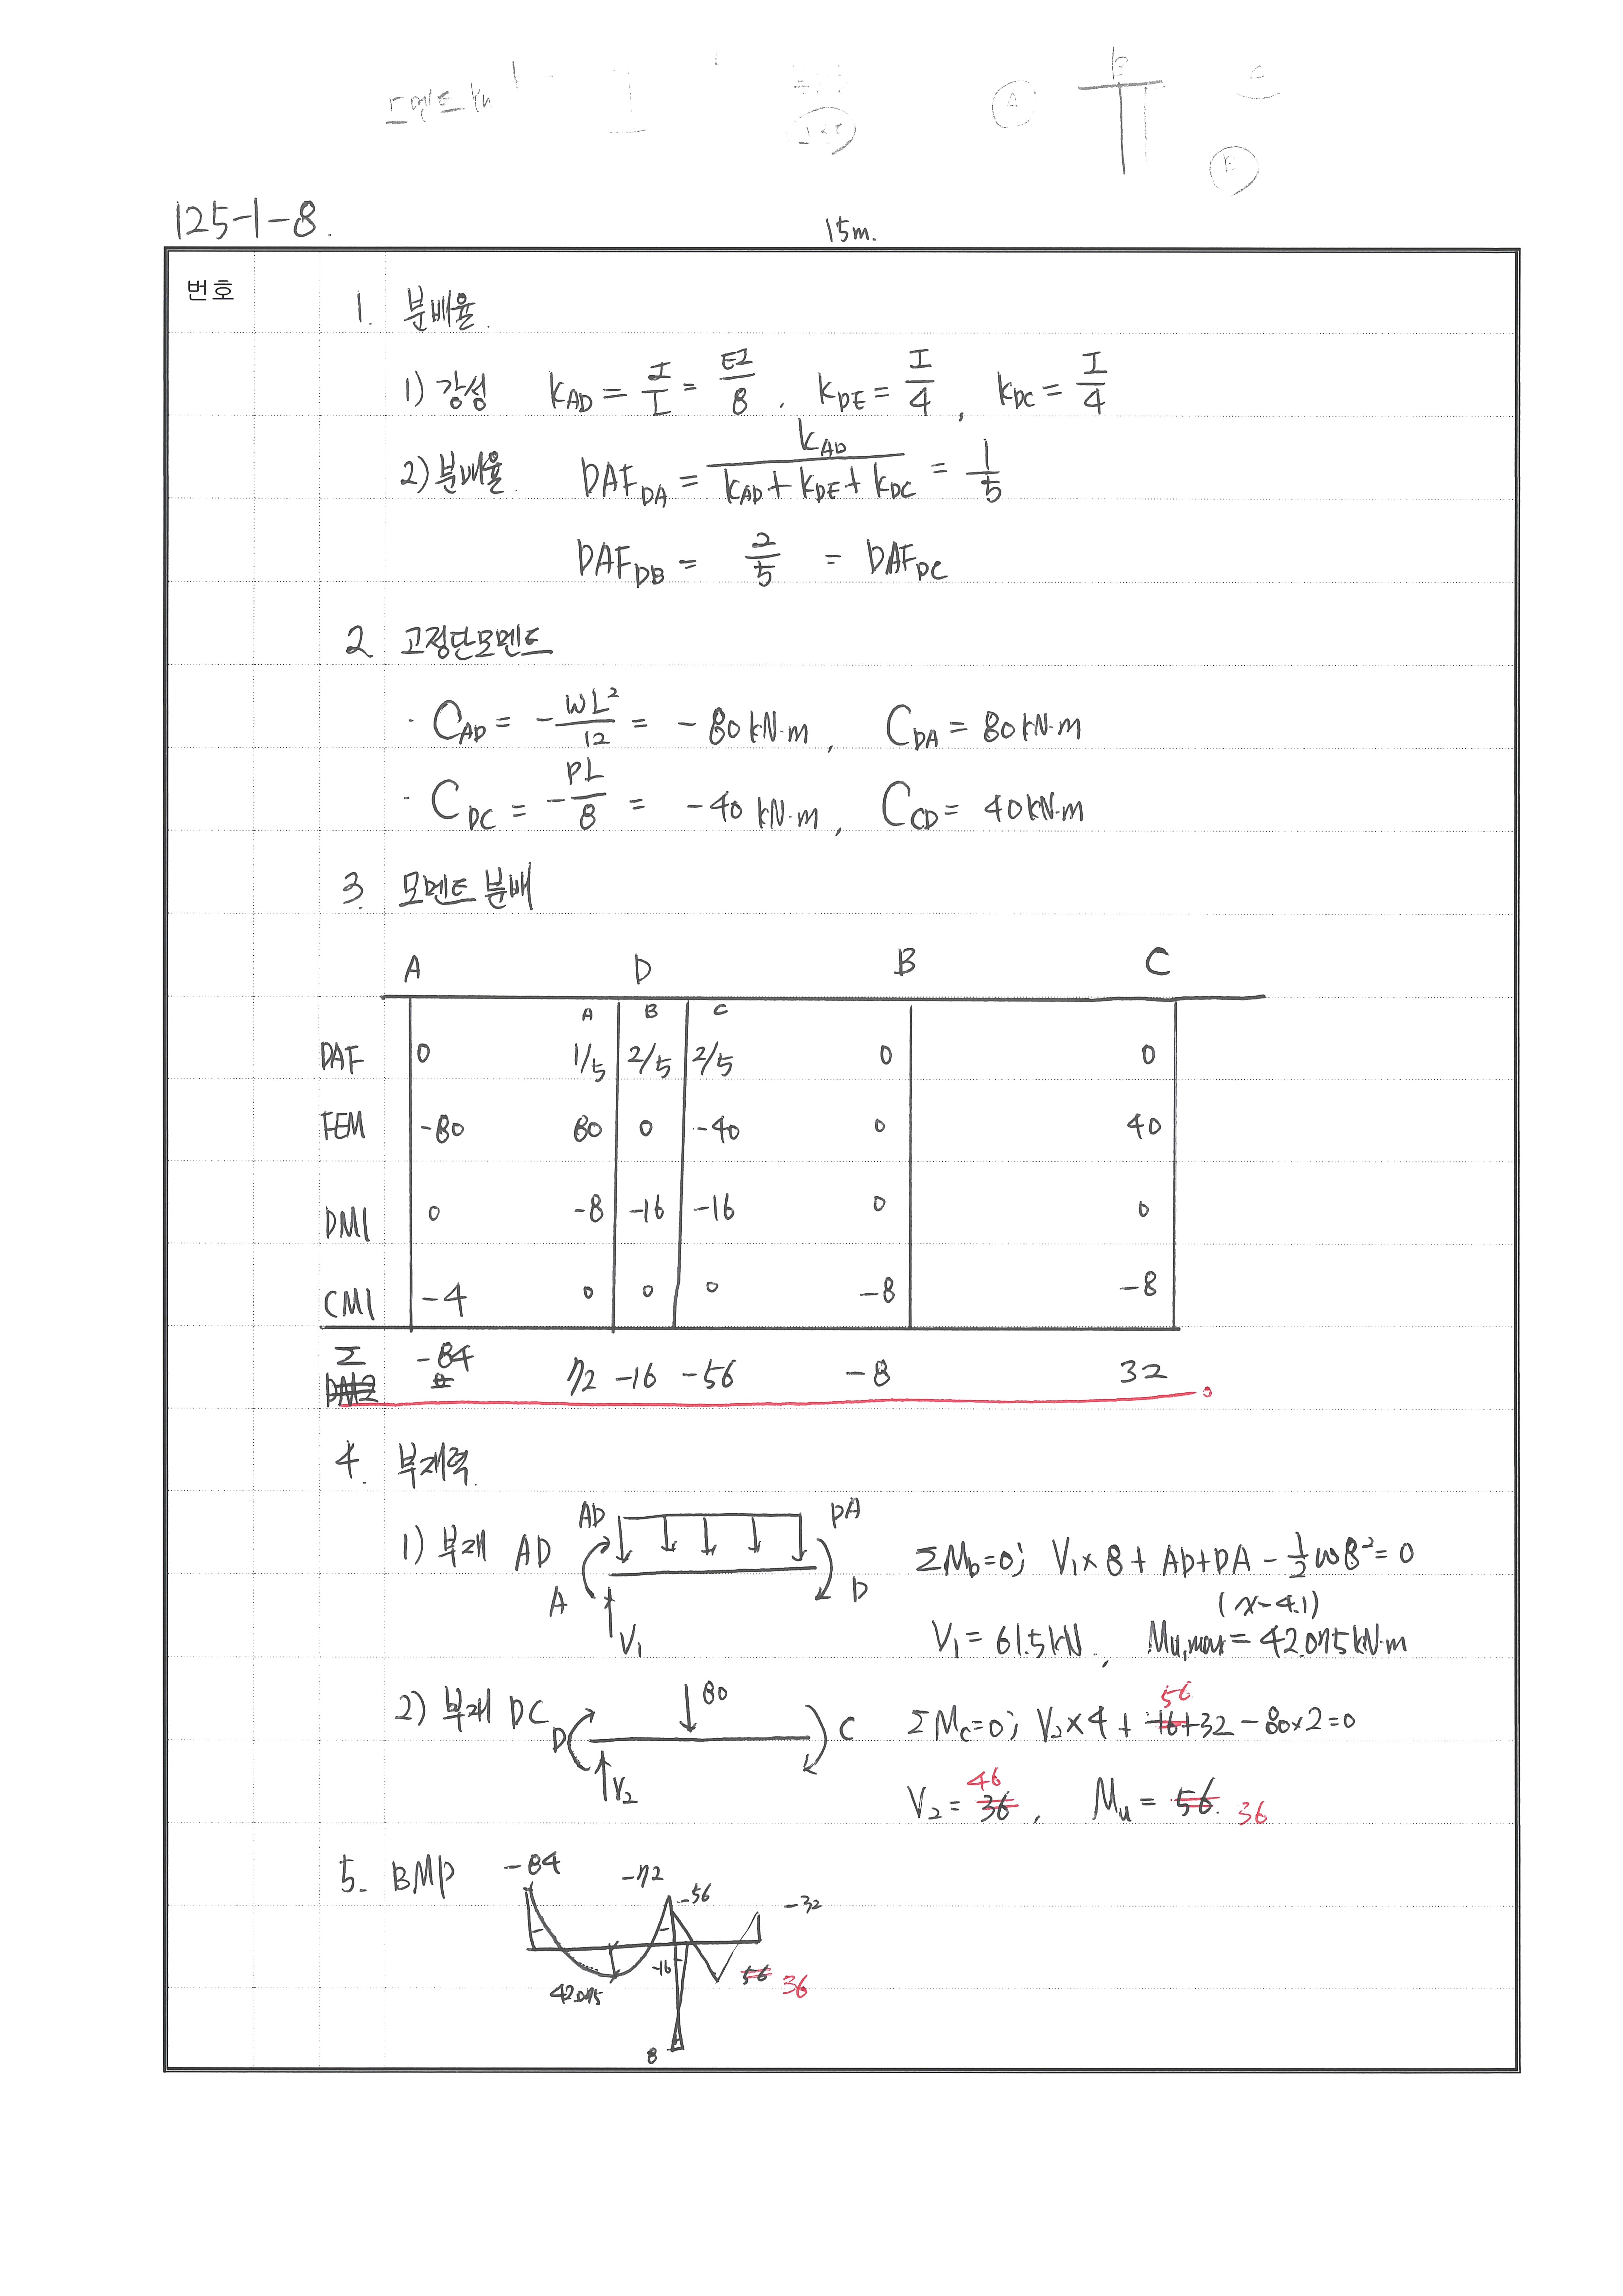 모멘트
A
E
C
B
125-1-8.
15m.
번호
1. 분배율.
1) 강성 kAD = I/L = EI/8 . kDE = I/4 , kDC = I/4
2) 분배율. DAFDA = kAD/(kAD+kDE+kDC) = 1/5
DAFDB = 2/5 = DAFDC
2 고정단모멘트
· CAD = -wL²/12 = -80kN·m, CDA = 80kN·m
· CDC = -PL/8 = -40 kN·m, CCD = 40kN·m
3. 모멘트 분배
A D B C
A B C
DAF 0 1/5 2/5 2/5 0 0
FEM -80 80 0 -40 0 40
DM1 0 -8 -16 -16 0 0
CM1 -4 0 0 0 -8 -8
Σ -84 72 -16 -56 -8 32
DM2 0
4. 부재력.
1) 부재 AD
AD DA
A D
V1
ΣMD=0; V1×8 + AD+DA - 1/2 ω8² = 0
(x-4.1)
V1 = 61.5kN, Mu,max = 42.075kN·m
2) 부재 DC
80
D C
V2
56
ΣMC=0; V2×4 + 16+32 - 80×2=0
46
V2 = 36, Mu = 56. 36
5. BMD
-84
-72
-56
-32
-16
42.075
56 36
8